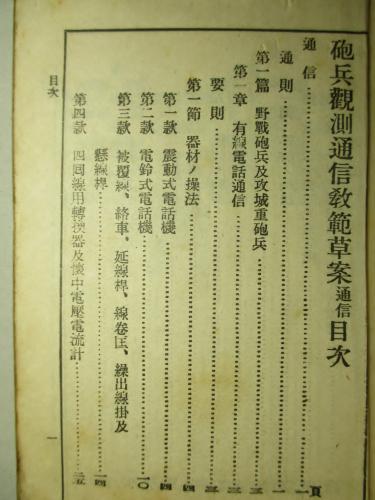 砲兵觀測通信敎範草案通信目次
頁
通信……一
通則……一
第一篇 野戰砲兵及攻城重砲兵……三
第一章 有線電話通信……三
要則……三
第一節 器材ノ操法……四
第一款 震動式電話機……四
第二款 電鈴式電話機……一〇
第三款 被覆線、絡車、延線桿、線卷匡、繰出線掛及
懸線桿……一四
第四款 四回線用轉換器及懷中電壓電流計……一五
目次
一